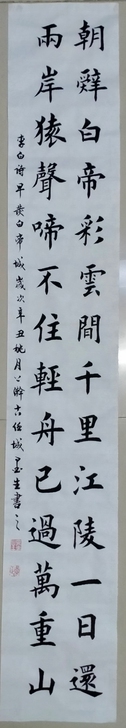 朝辤白帝彩雲間千里江陵一日還
兩岸猿聲啼不住輕舟已過萬重山
李白詩早發白帝城歲次辛丑桃月於濟古任城墨生書之